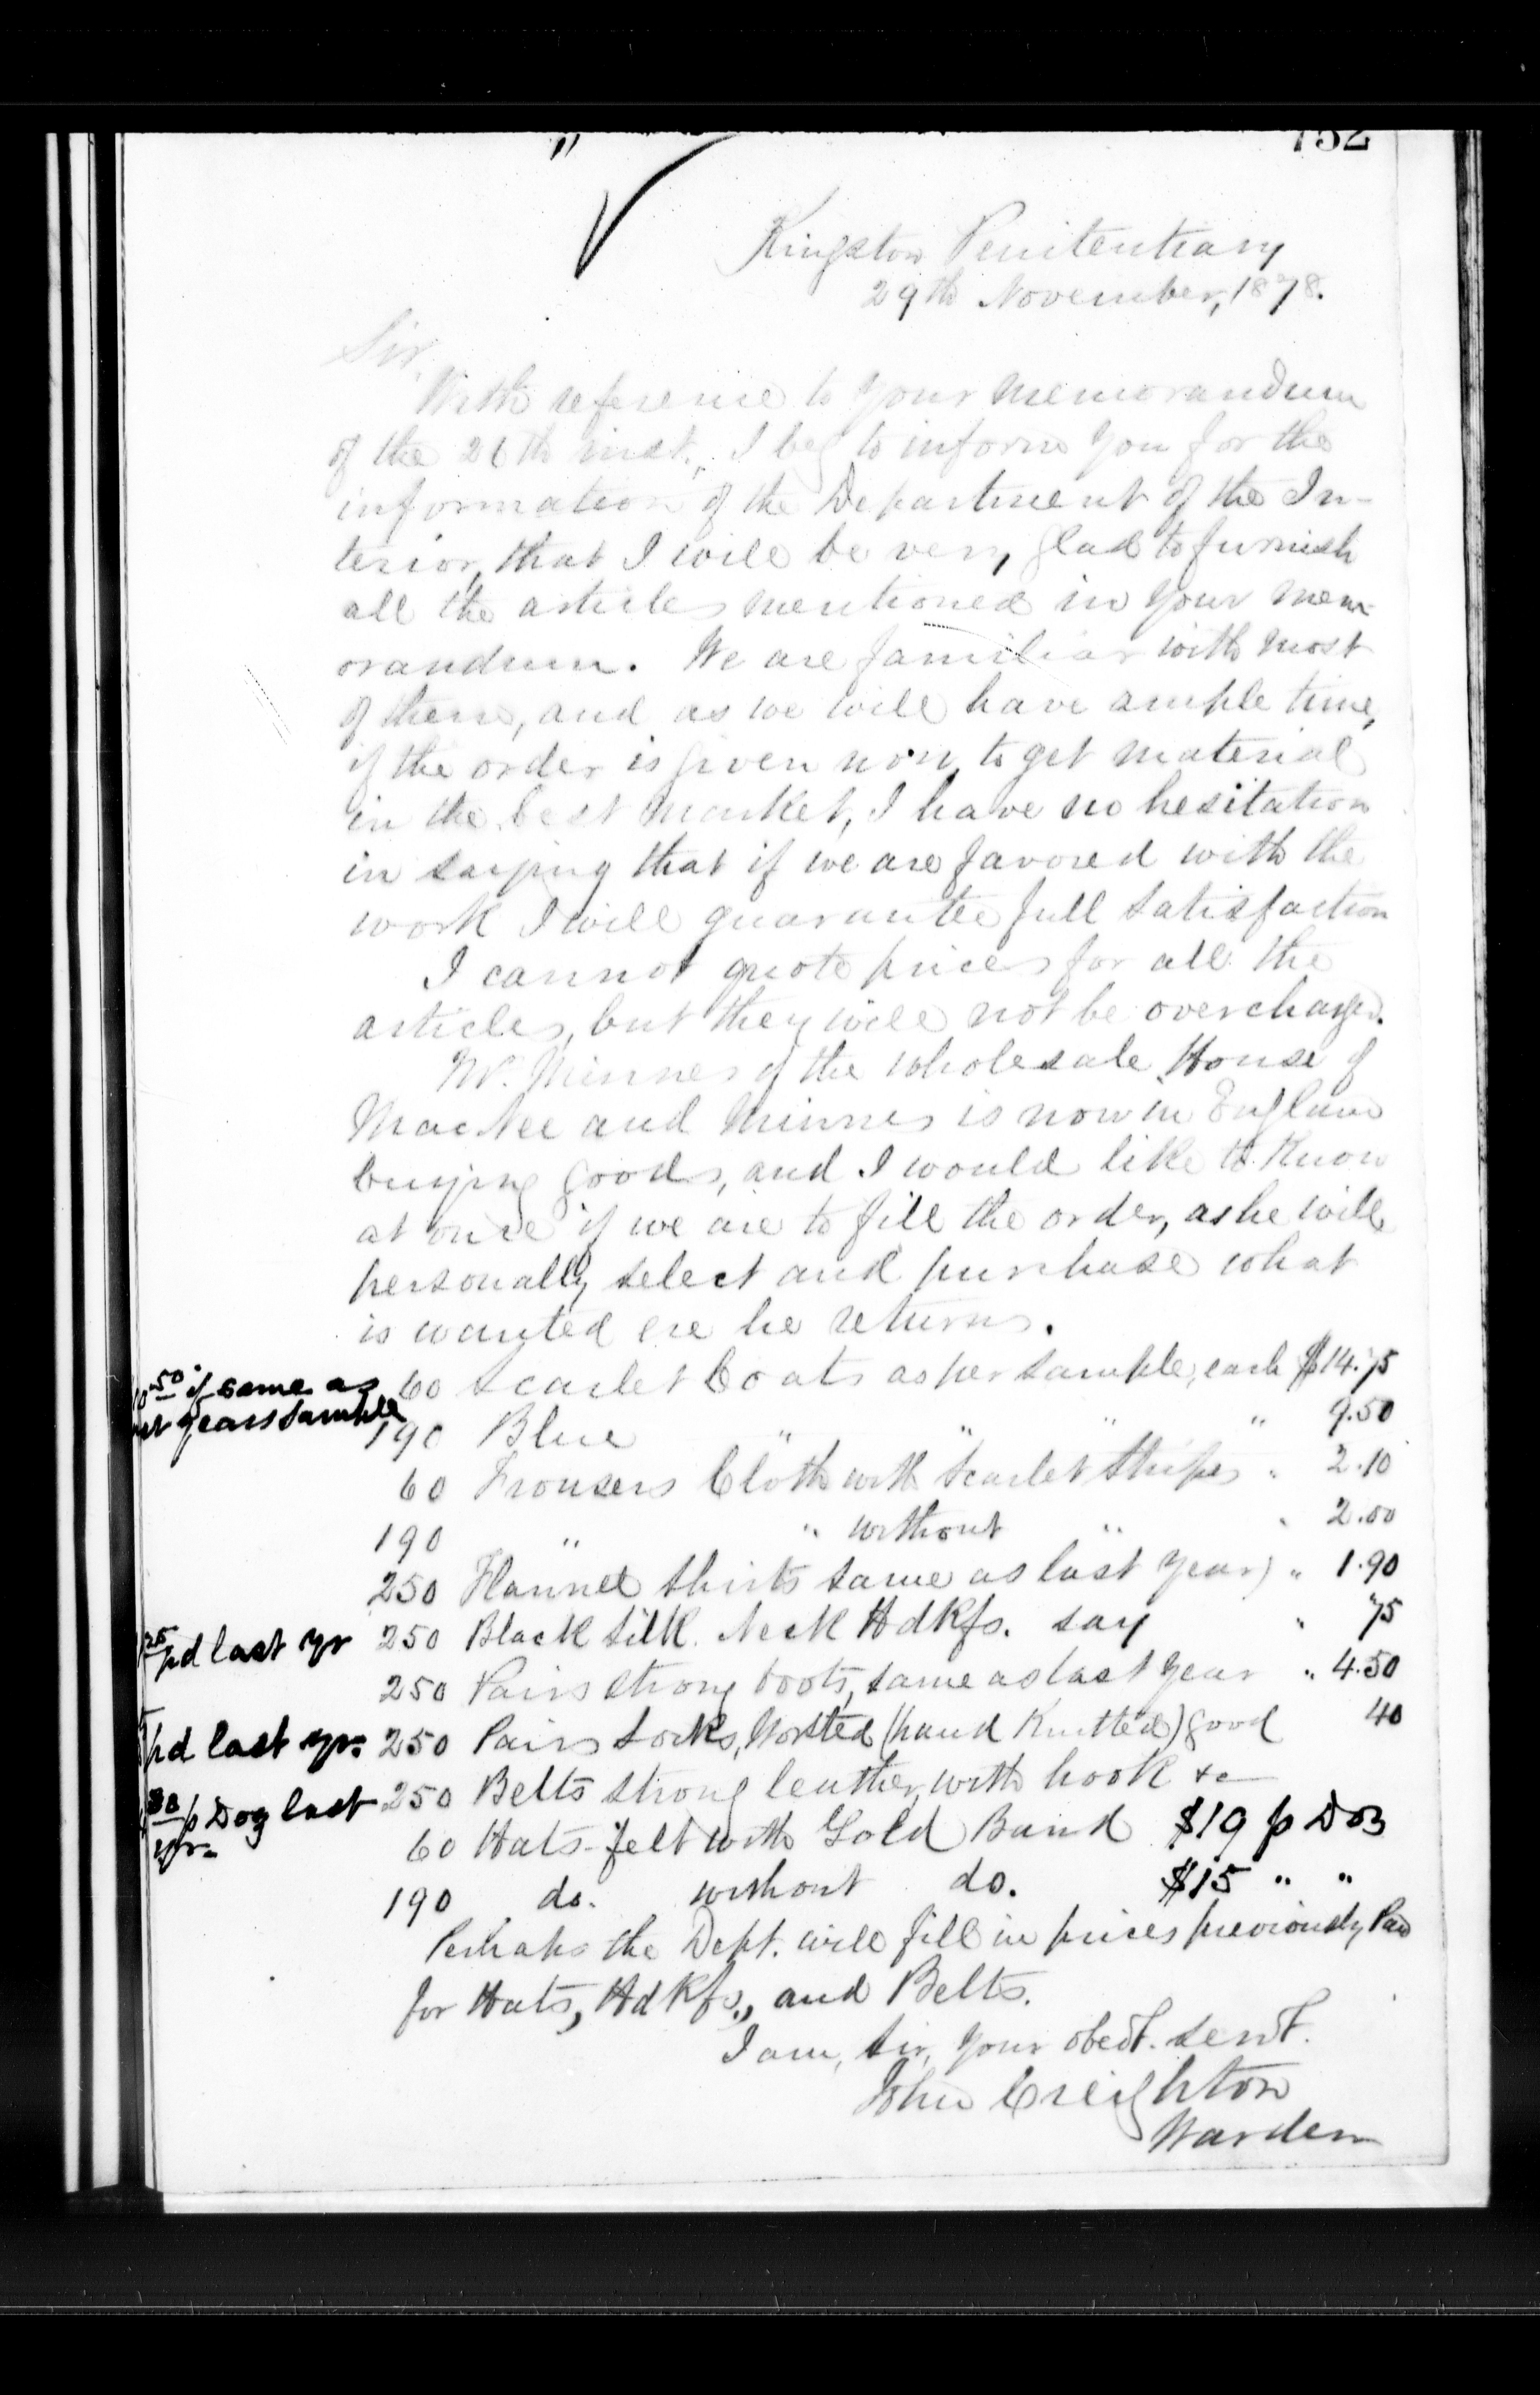 752
Kingston Penitentiary
29th November, 1878.
Sir,
With reference to your memorandum
of the 26th inst., I beg to inform you for the
information of the Department of the In-
terior, that I will be very glad to furnish
all the articles mentioned in your mem-
orandum. We are familiar with most
of them, and as we will have ample time,
if the order is given now, to get material
in the best market, I have no hesitation
in saying that if we are favored with the
work I will guarantee full satisfaction
I cannot quote prices for all the
articles, but they will not be overcharged.
Mr. Minnes of the wholesale House of
MacNee and Minnes is now in England
buying goods, and I would like to know
at once if we are to fill the order, as he will
personally select and purchase what
is wanted ere he returns.
50 if same as
year's sample
60 Scarlet Coats as per sample, each $14.75
190 Blue " " " " 9.50
60 Trousers Cloth with Scarlet Stripes " 2.10
190 " " without " " 2.00
250 Flannel Shirts same as last year) " 1.90
pd last yr 250 Black Silk Neck Hdkfs. say " 75
250 Pairs strong boots, same as last year " 4.50
pd last yr. 250 Pairs Socks, Worsted (hand Knitted) good 40
p Doz last yr. 250 Belts strong leather, with hook &c
60 Hats-felt with Gold Band $19 p Doz
190 do. without do. $15 " "
Perhaps the Dept. will fill in prices previously Paid
for Hats, Hdkfs., and Belts.
I am, Sir, your obedt. servt.
John Creighton
Warden